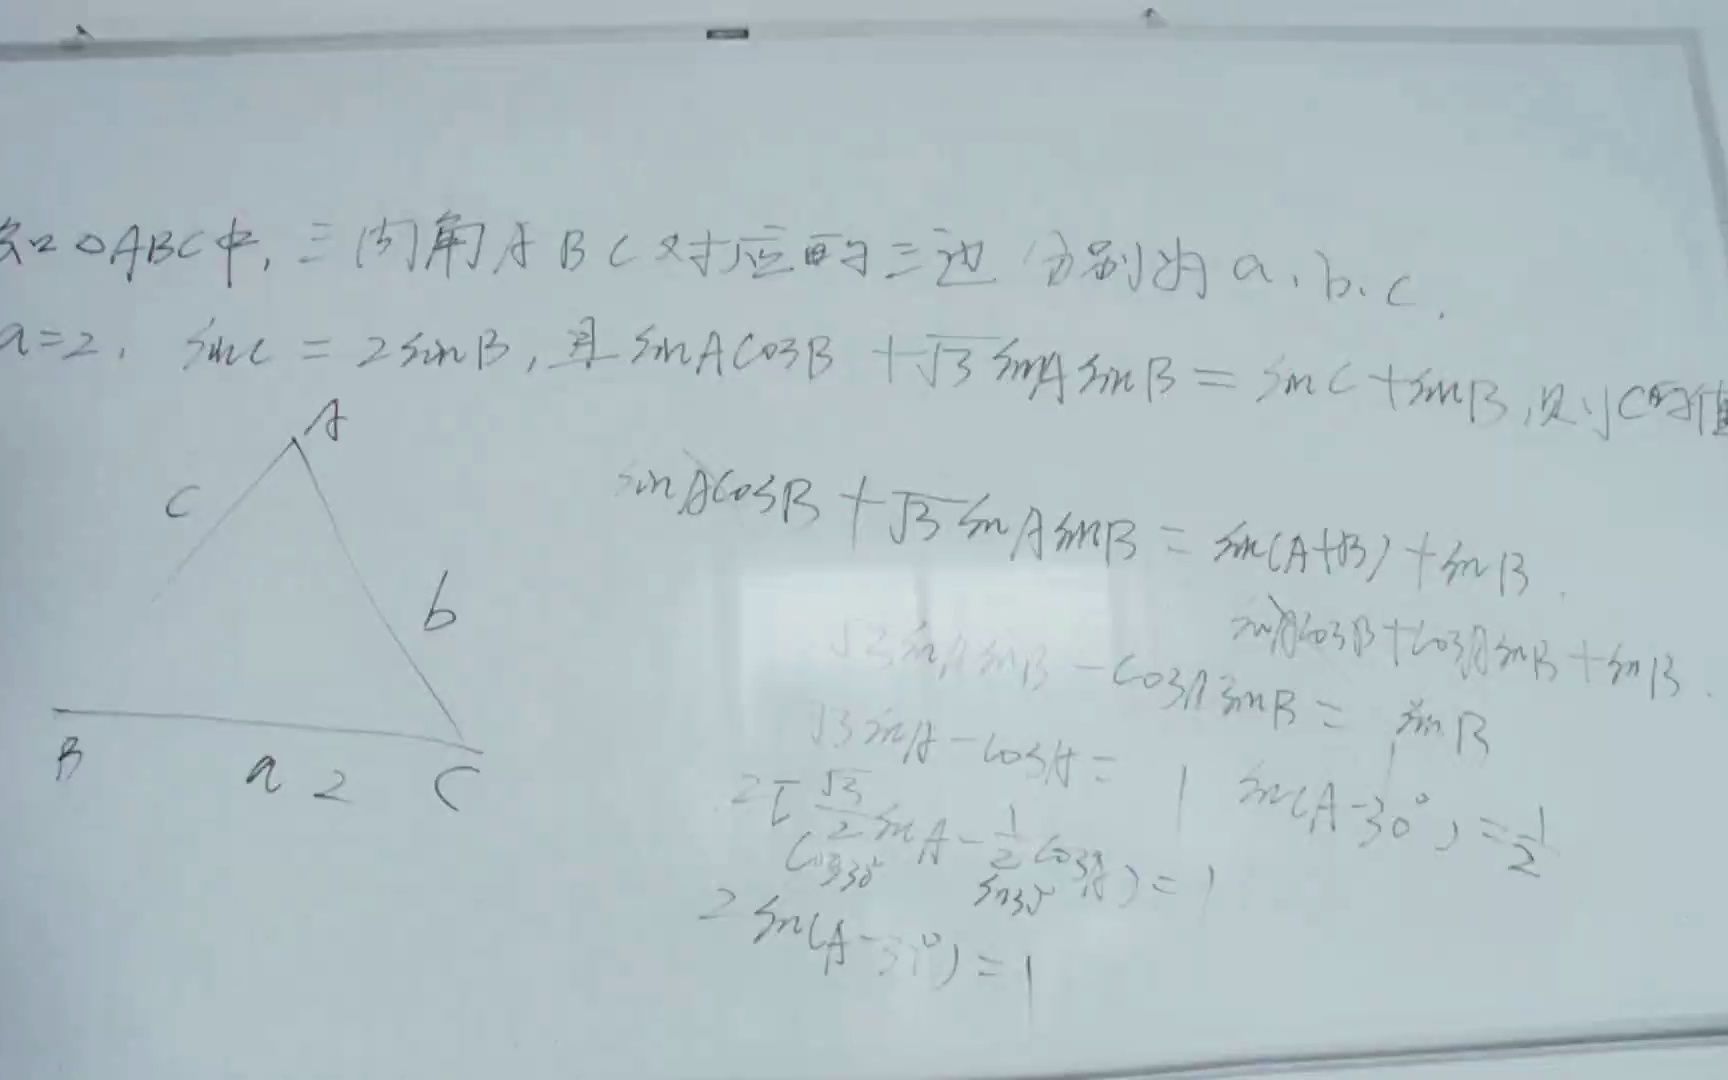 知△ABC中,三内角A B C对应的三边分别为a、b、c.
a=2, sinC = 2sinB,且sinAcosB +√3 sinA sinB = sinC+sinB,则C的值
A
C
b
B
a 2
C
sinAcosB + √3 sinA sinB = sin(A+B) + sinB.
sinAcosB+cosAsinB+sinB.
√3 sinA sinB - cosA sinB = sinB
√3 sinA - cosA = 1
sin(A-30°) = 1/2
2[√3/2 sinA - 1/2 cosA) = 1
cos30° sin30°
2 sin(A-30°) = 1